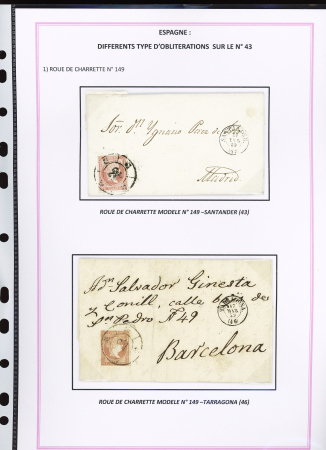 ESPAGNE :
DIFFERENTS TYPE D'OBLITERATIONS SUR LE N° 43
1) ROUE DE CHARRETTE N° 149
Sor. Dn Ygnacio Perez de
Madrid
ROUE DE CHARRETTE MODELE N° 149 –SANTANDER (43)
A Dn Salvador Ginesta
y Conill, calle baja de
Sn Pedro N 49
Barcelona
(46)
ROUE DE CHARRETTE MODELE N° 149 –TARRAGONA (46)